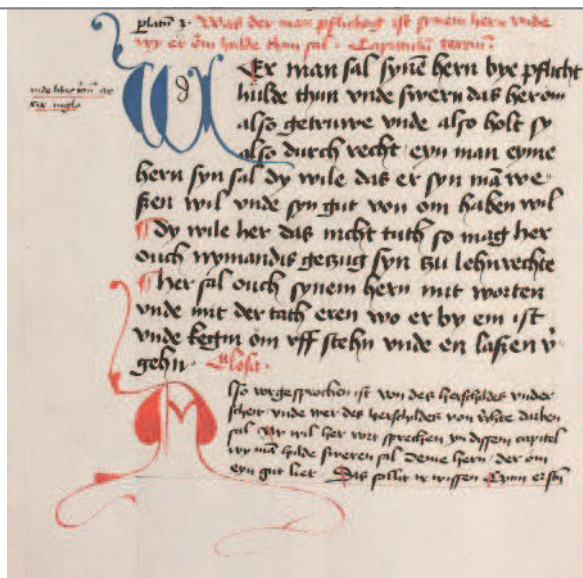 Was der man pflichtig ist synem hern vnde
wy er om hulde thun sal · Capitulum
Er man sal synē hern bye pflicht
hulde thun vnde swern das her om
also getruwe vnde also holt sy
also durch recht eyn man eyme
hern syn sal dy wile das er syn mā we
ßen wil vnde syn gut von om haben wil
dy wile her das nicht tuth so mag her
ouch nymandis geczug syn czu lehnrechte
her sal ouch synem hern mit worten
vnde mit der tath eren wo er by em ist
vnde kegin om vff stehn vnde en laßen v̄
gehn · Glosa ·
lso vorgesprochen ist von des herschildes vnder
scheit vnde wer des herschildes von rechte darben
sal wil her vort sprechen yn dissem capitel
wy mā hulde sweren sal deme hern der om
eyn gut liet · Das soltu wissen Czum ersten